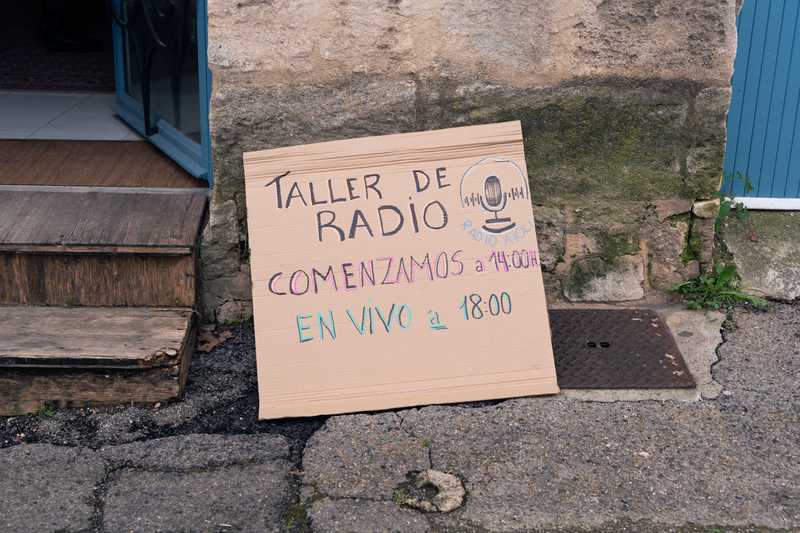 TALLER DE
RADIO
RADIO AQUI
COMENZAMOS a 14:00H
EN VIVO a 18:00